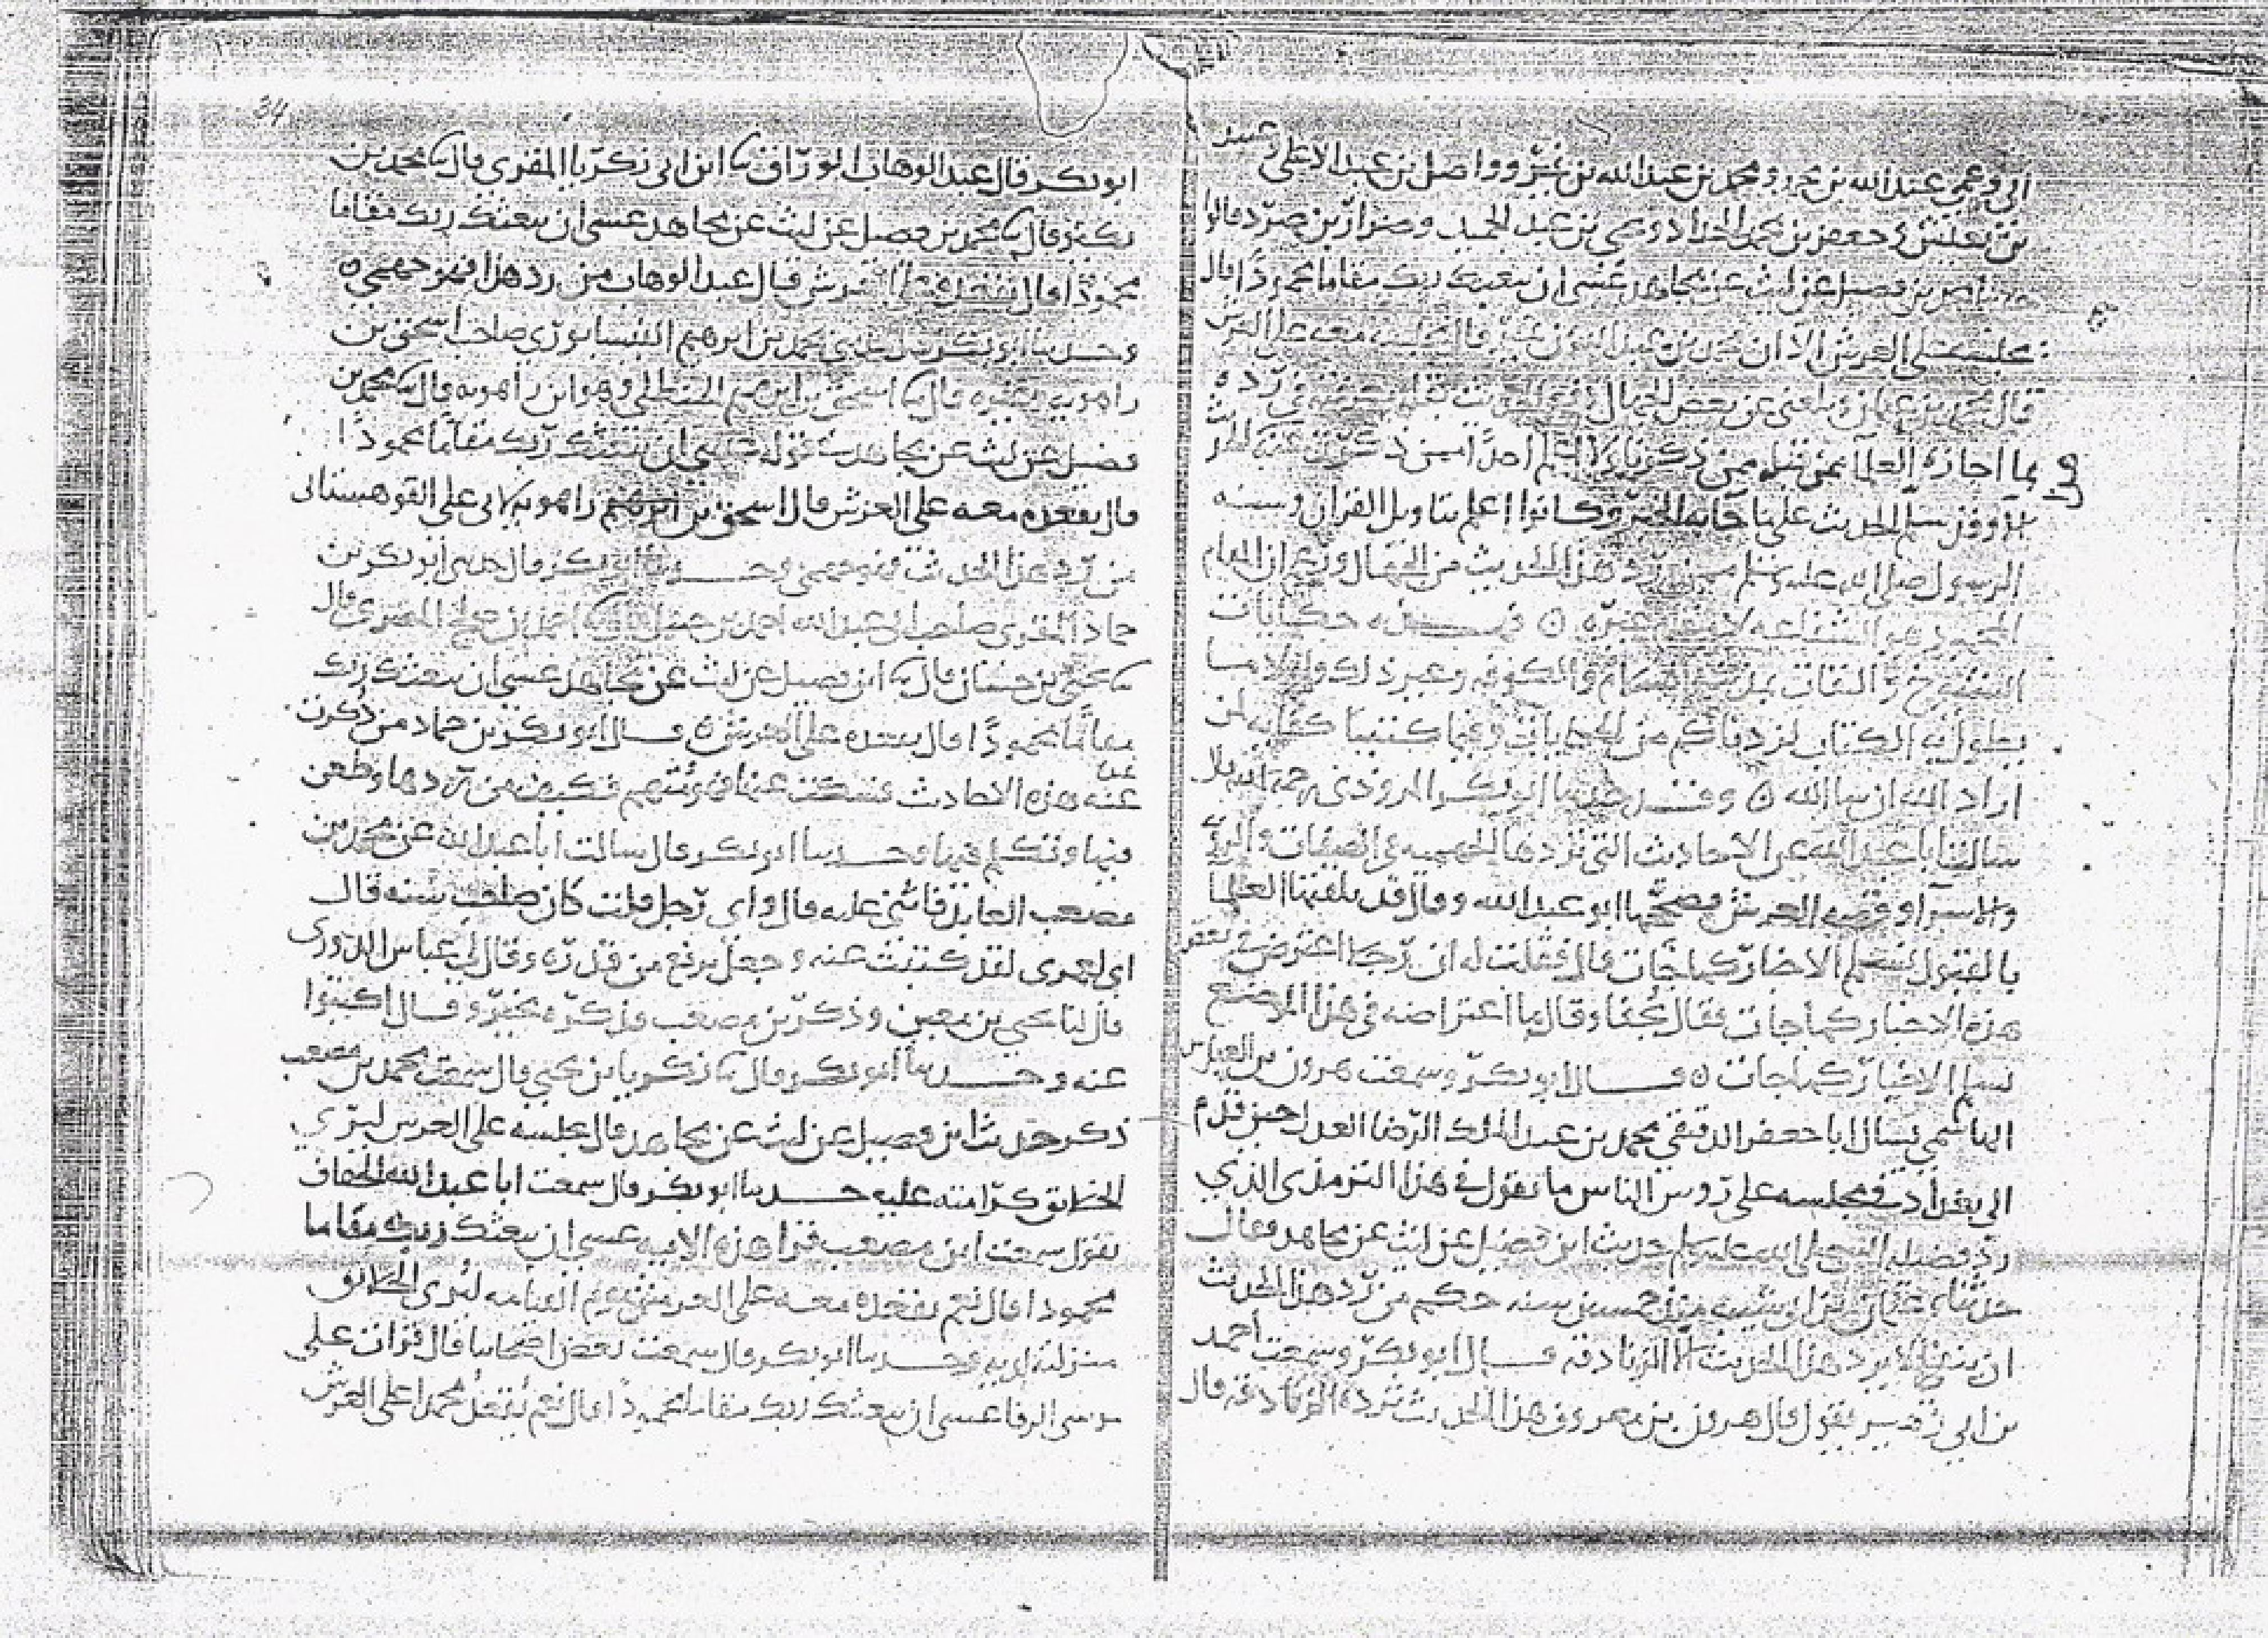 ابي وعمي عبد الله بن عمر ومحمد بن عبد الله بن نمير وواصل بن عبد الاعلى وعبيد
بن يعيش وجعفر بن محمد الحداد ويحيى بن عبد الحميد وضرار بن صرد قالوا
محمد بن فضيل عن ليث عن مجاهد عسى ان يبعثك ربك مقاما محمودا قال
يجلسه على العرش الا ان محمد بن عبد الله بن نمير قال يجلسه معه على العرش
قال محمد بن عثمن وبلغني عن بعض الجهال دفع الحديث بقلة معرفته في رده
مما اجازه العلما ممن قبله ممن ذكرنا ولا اعلم احدا ممن ذكرت عنه هذا
الا وقد سلم الحديث على ما جا به الخبر وكانوا اعلم بتاويل القران وسنه
الرسول صلى الله عليه وسلم ممن رد هذا الحديث من الجهال وزعم ان المقام
المحمود هو الشفاعه لا مقام غيره ه حكايات
الشيوخ والثقات بمدينة السلام والكوفه وغير ذلك ولولا ما
يطول به الكتاب لزدناكم من الحكايات وفيما كتبنا كفايه لمن
اراد الله ان شا الله ه وقد حدثنا ابو بكر المروذي رحمه الله قال
سالت ابا عبد الله عن الاحاديث التي تردها الجهميه في الصفات والرؤية
والاسرا وقصه العرش فصححها ابو عبد الله وقال قد تلقتها العلما
بالقبول نسلم الاخبار كما جات قال فقلت له ان رجلا اعترض في بعض
هذه الاخبار كما جات فقال يجفا وقال ما اعتراضه في هذا الموضع
نسلم الاخبار كما جات ه قال ابو بكر وسمعت هرون بن العباس
الهاشمي يسال ابا جعفر الدقيقي محمد بن عبد الملك الرضا العدل حين قدم
الى بغداد في مجلسه على روس الناس ما تقول في هذا الترمذي الذي
رد فضيله النبي صلى الله عليه وسلم حديث ابن فضيل عن ليث عن مجاهد وقال
حدثناه عثمان بن ابي شيبه منذ خمسين سنه حكيم من رد هذا الحديث
ان ينفا لا يرد هذا الحديث الا الزنادقه قال ابو بكر وسمعت احمد
بن ابي زهير يقول قال هرون بن معروف هذا الحديث ترده الزنادقه قال
34
ابو بكر قال عبد الوهاب الوراق نا ابن ابي زكريا المقري قال نا محمد بن
بكير قال نا محمد بن فضيل عن ليث عن مجاهد عسى ان يبعثك ربك مقاما
محمودا قال يقعده على العرش قال عبد الوهاب من رد هذا فهو جهمي ه
وحدثنا ابو بكر حدثني محمد بن ابرهيم النيسابوري صاحب اسحق بن
راهويه وغيره قال نا اسحق بن ابرهيم الحنظلي وهو ابن راهويه قال نا محمد بن
فضيل عن ليث عن مجاهد في قوله عسى ان يبعثك ربك مقاما محمودا
قال يقعده معه على العرش قال اسحق بن ابرهيم راهويه لابي علي القوهستاني
من رد هذا الحديث فهو جهمي وحدثنا ابو بكر قال حدثني ابو بكر بن
حماد المقري صاحب ابي عبد الله احمد بن حنبل قال نا احمد بن صالح المصري قال
نا يحيى بن حسان قال نا ابن فضيل عن ليث عن مجاهد عسى ان يبعثك ربك
مقاما محمودا قال يقعده على العرش ه قال ابو بكر بن حماد من ذكرت
عنده هذه الاحاديث فسكت عنها فهو متهم فكيف من ردها وطعن
فيها وتكلم فيها وحدثنا ابو بكر قال سالت ابا عبد الله عن محمد بن
مصعب العابد فاثنى عليه قال واي رجل قلت كان صاحب سنه قال
اي لعمري لقد كتبت عنه وجعل يرفع من قدره وقال لي عباس الدوري
قال لنا يحيى بن معين وذكر بن مصعب فذكره بخير وقال اكتبوا
عنه وحدثنا ابو بكر قال نا زكريا بن يحيى قال سمعت محمد بن مصعب
ذكر حديث ابن فضيل عن ليث عن مجاهد قال يجلسه على العرش ليرى
الخلائق كرامته عليه حدثنا ابو بكر قال سمعت ابا عبد الله الخفاف
يقول سمعت ابن مصعب قرا هذه الايه عسى ان يبعثك ربك مقاما
محمودا قال نعم يقعده معه على العرش يوم القيامه ليرى الخلائق
منزلته لديه وحدثنا ابو بكر قال سمعت بعض اصحابنا قال قرات على
موسى الرفا عسى ان يبعثك ربك مقاما محمودا قال نعم يقعد محمدا على العرش